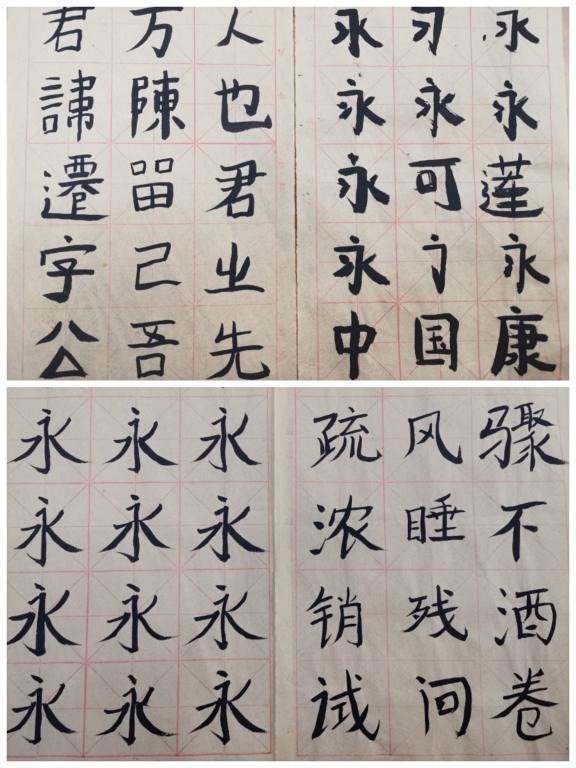 君諱遷字公
方陳留己吾
人也君之先
永永永永中
永可国
永永莲永康
永永永
永永永
永永永
永永永
疏风骤
浓睡不
销残酒
试问卷